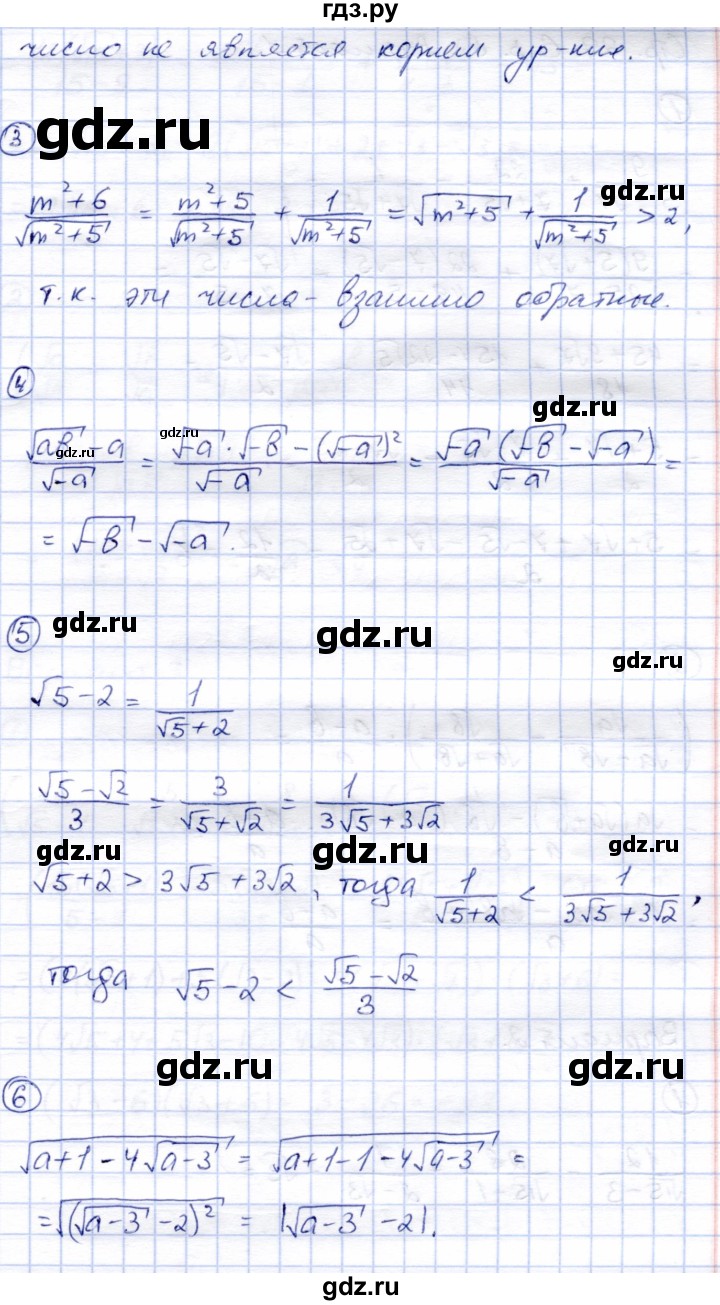 гдз.ру
число не является корнем ур-ние.
gdz.ru
③
gdz.ru
(m²+6)/√(m²+5) = (m²+5)/√(m²+5) + 1/√(m²+5) = √(m²+5) + 1/√(m²+5) > 2,
т.к. эти числа - взаимно обратные.
④
gdz.ru
gdz.ru
gdz.ru
(√(ab) - a)/√(-a) = (√(-a) · √(-b) - (√(-a))²)/√(-a) = (√(-a) (√(-b) - √(-a)))/√(-a) =
= √(-b) - √(-a).
⑤ gdz.ru
gdz.ru
gdz.ru
√5 - 2 = 1/(√5 + 2)
(√5 - √2)/3 = 3/(√5 + √2) = 1/(3√5 + 3√2)
gdz.ru
gdz.ru
gdz.ru
√5 + 2 > 3√5 + 3√2, тогда 1/(√5 + 2) < 1/(3√5 + 3√2),
тогда √5 - 2 < (√5 - √2)/3
gdz.ru
gdz.ru
⑥
√(a + 1 - 4√(a - 3)) = √(a + 1 - 1 - 4√(a - 3)) =
= √((√(a - 3) - 2)²) = |√(a - 3) - 2|.
gdz.ru